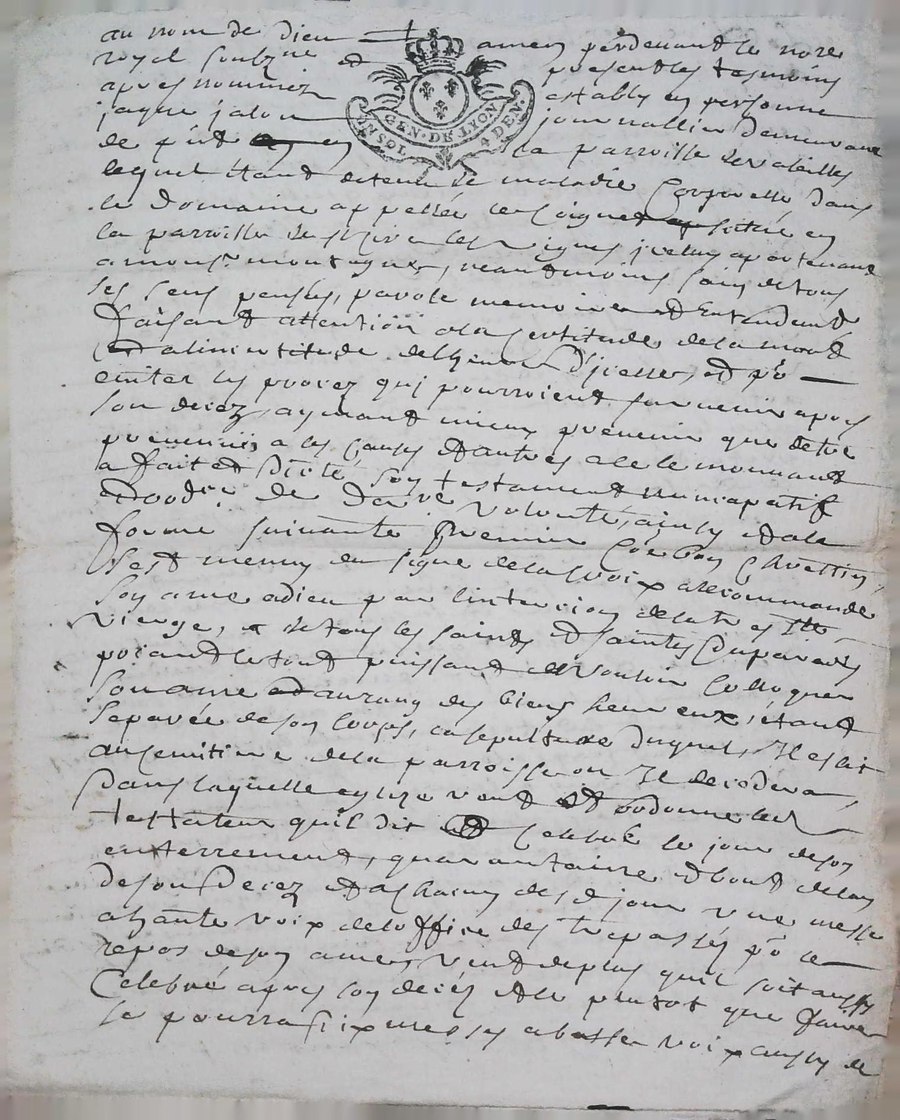 au nom de Dieu amen perdevant le nore
royal soubzne et presents les tesmoins
apres nommez estably en personne
jaque jalou journallier demeurant
GEN · DE LYON
4 DEN ·
de la parroisse
lequel etant detenu de maladie corporelle dans
le domaine appellée situé en
la parroisse de les vignes apartenant
a monsr neantmoins sain de tous
ses sens pensés, parole memoire et Entendemt
faisant attention a la certitude de la mort
et a lincertitude de lheure Dicelle, et po
eviter les procez qui pourroient survenir apres
son decez, aymant mieux prevenir que detre
prevenu, a ces causes et autres a le mouvant
a fait et Dicté son testament nuncupatif
et ordre de derre volonté, ainsy et a la
forme suivante Premier Coe bon Chrestien
sest muny du signe de la Croix a recommandé
son ame a dieu par lintercion de la tres ste
vierge, et de tous les saints et saintes Du paradis
priant le tout puissant de vouloir Colloquer
son ame au rang des biens heureux, étant
separée de son corps, la sepulture Duquel, Il eslit
au semitiere de la parroisse ou Il decedera,
Dans laquelle eglize veut et ordonne led
testateur quil soit Celebré le jour de son
enterrement, quarantaine et bout de lan
de son Decez et a chacun desd jours une messe
a haute voix de loffice des trepassés po le
repos de son ame, veut de plus quil soit aussy
Celebré apres son decés et le plutot que faire
se pourra six messes a basse voix aussy de